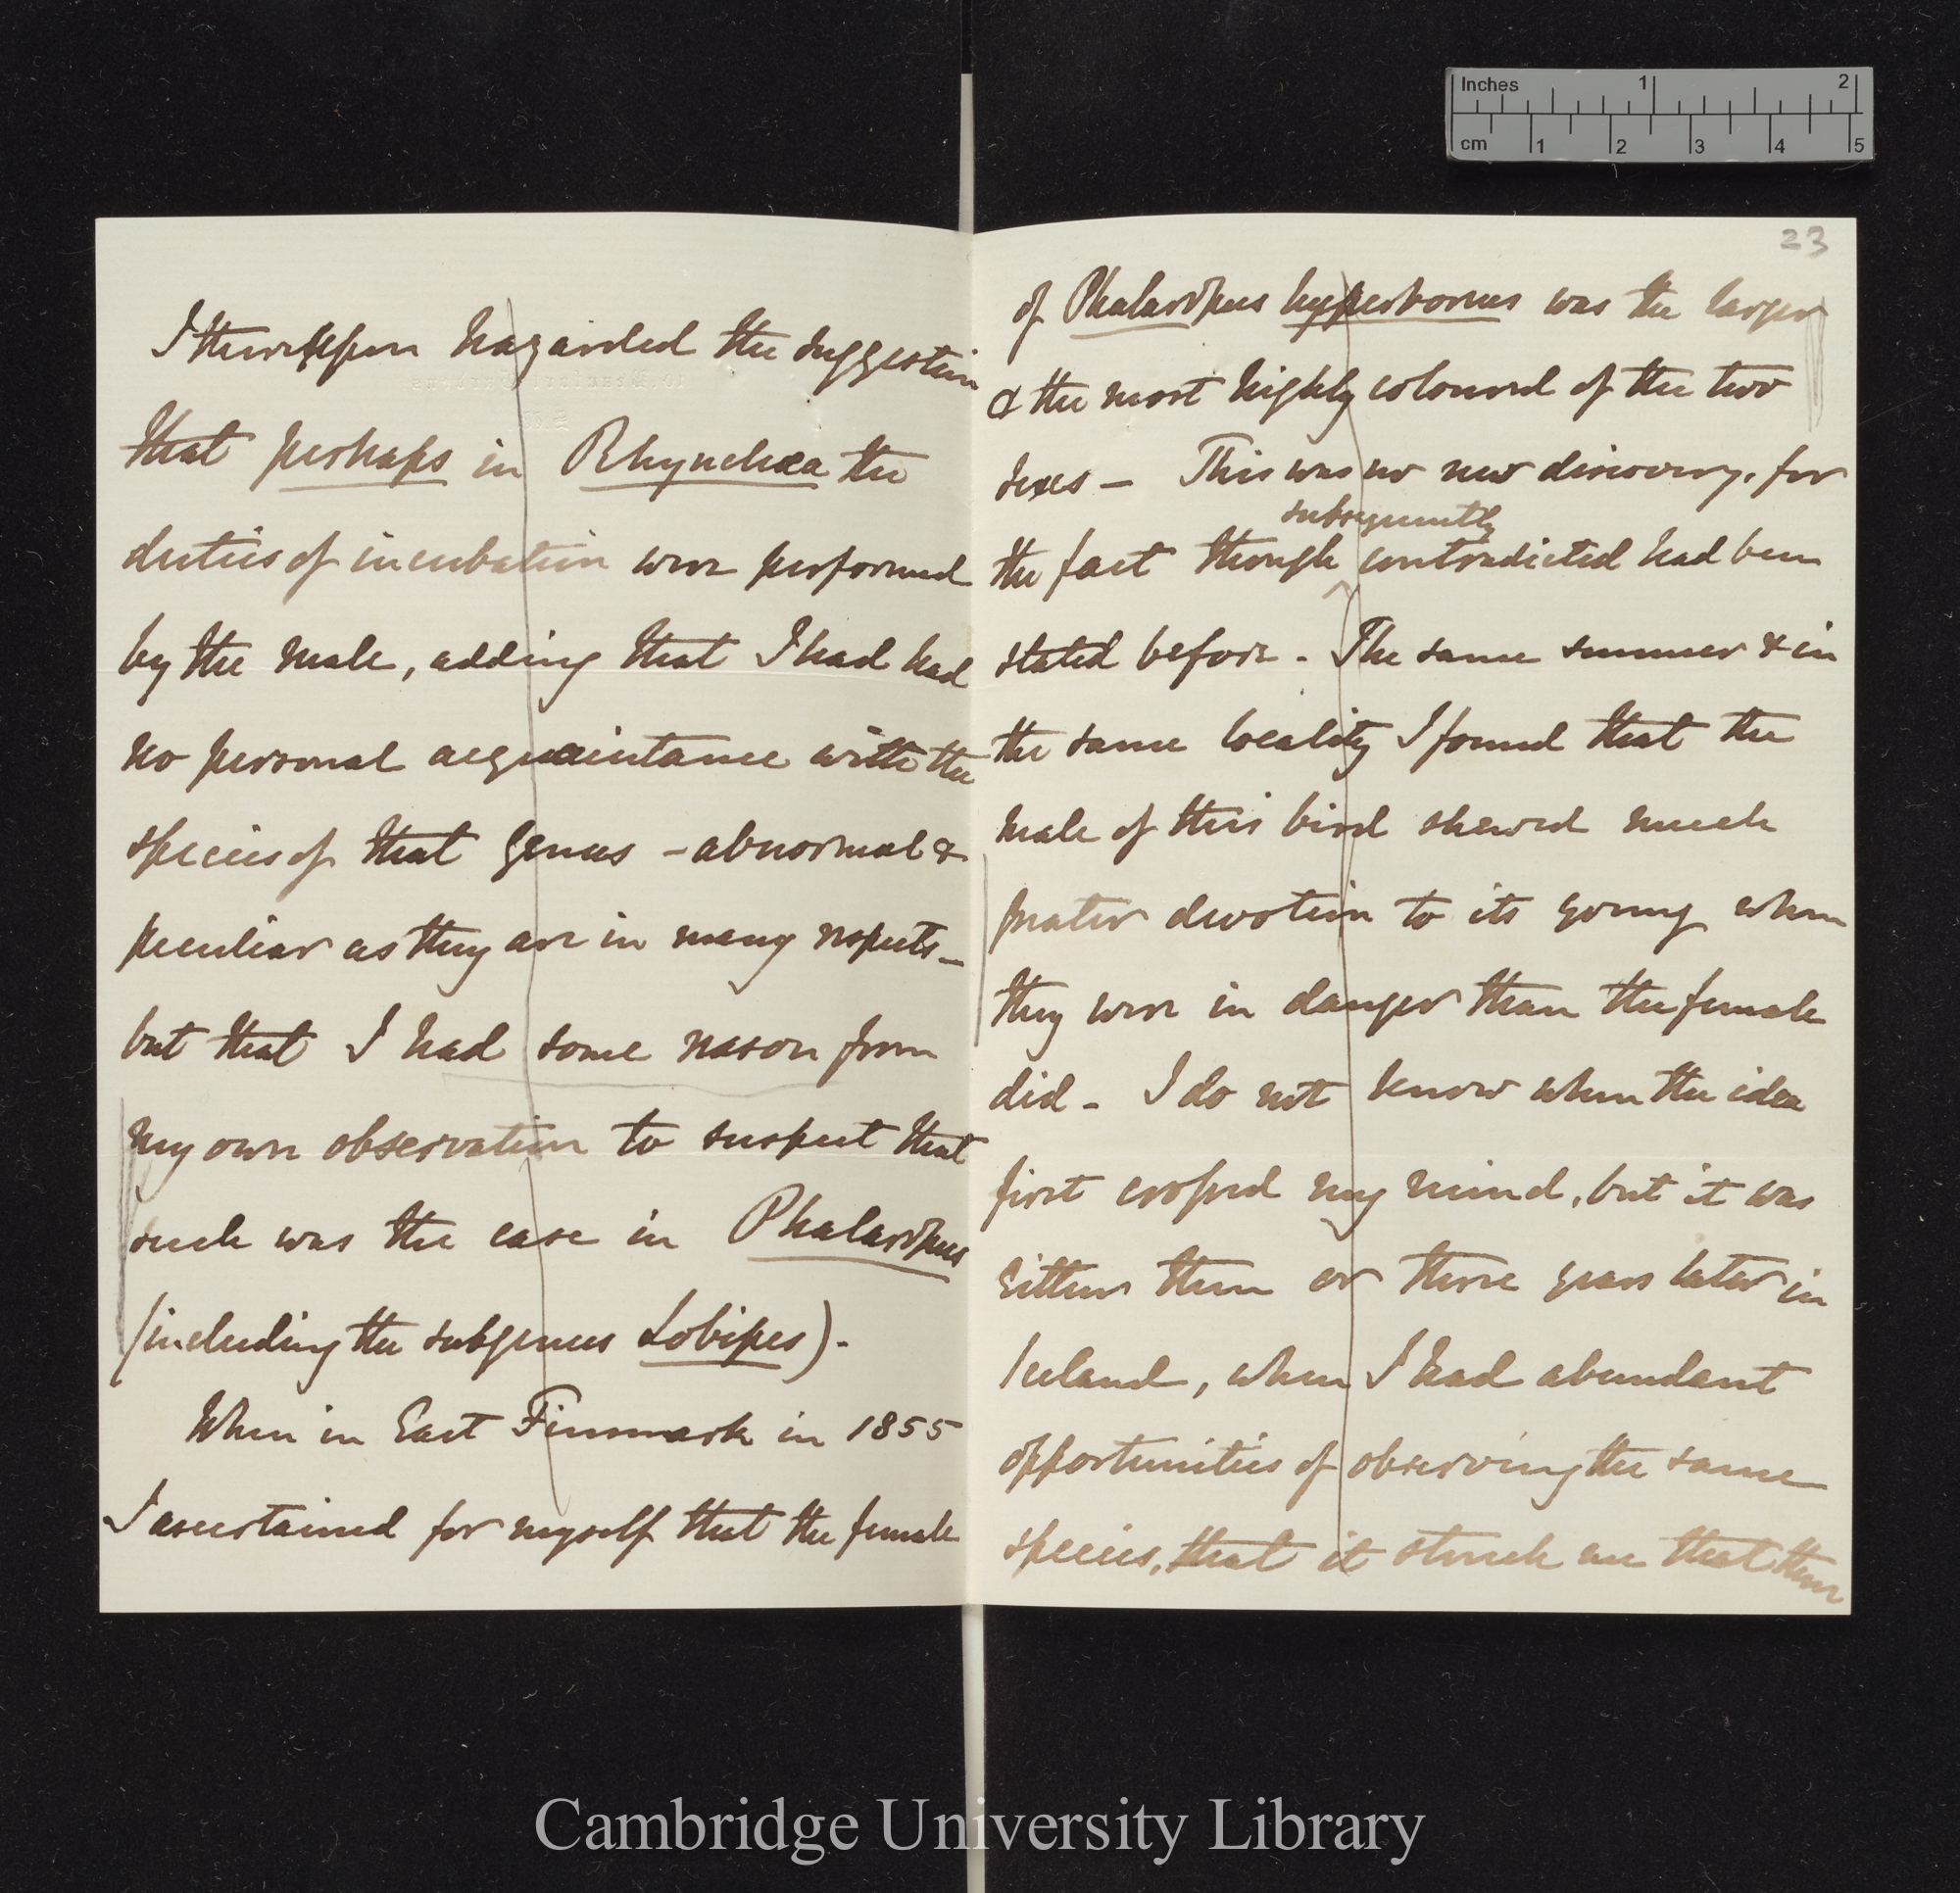 I thereupon hazarded the suggestion
that perhaps in Rhynchœa the
duties of incubation were performed
by the male, adding that I had had
no personal acquaintance with the
species of that genus – abnormal &
peculiar as they are in many respects –
but that I had some reason from
my own observation to suspect that
such was the case in Phalaropus
(including the subgenus Lobipes).
When in East Finmark in 1855
I ascertained for myself that the female
23
of Phalaropus hyperboreus was the larger
& the most highly coloured of the two
sexes – This was no new discovery, for
subsequently
the fact though ^ contradicted had been
stated before. The same summer & in
the same locality I found that the
male of this bird shewed much
greater devotion to its young when
they were in danger than the female
did – I do not know when the idea
first crossed my mind, but it was
either then or three years later in
Iceland, when I had abundant
opportunities of observing the same
species, that it struck me that there
Inches 1 2
cm 1 2 3 4 5
Cambridge University Library